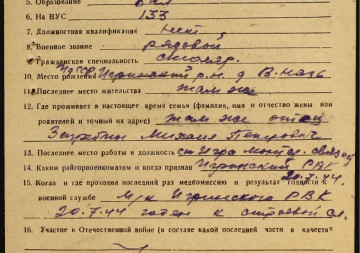 5. Образование
6. На ВУС 133
7. Должностная квалификация нет
8. Военное звание рядовой
9. Гражданская специальность столяр
10. Место рождения УАССР Игринский р-н д
11. Последнее место жительства там же
12. Где проживает в настоящее время семья (фамилия, имя и отчество жены или
родителей и точный их адрес) там же отец
Михаил Петрович
13. Последнее место работы и должность ст Игра
14. Каким райгорвоенкоматом и когда призван Игринский РВК
20.7.44
15. Когда и где проходил последний раз медкомиссию и результат годности к
военной службе м/к Игринского РВК
20.7.44 годен к строевой сл.
16. Участие в Отечественной войне (в составе какой последней части в качеств